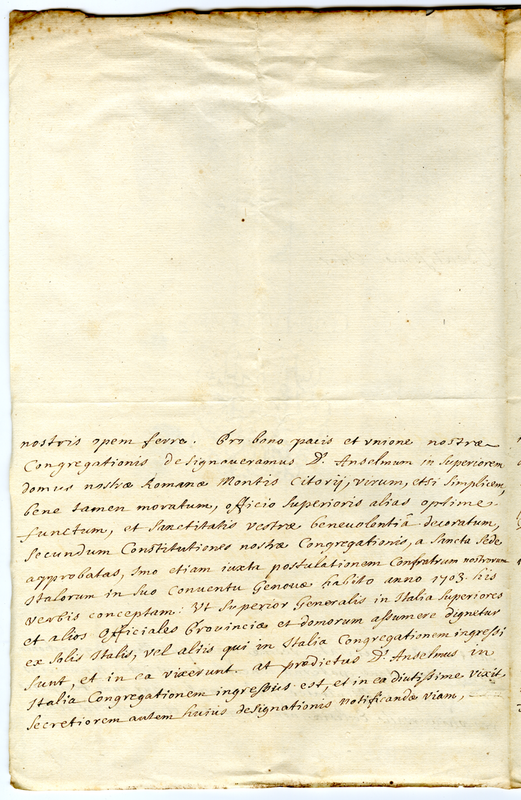 nostris opem ferre. Pro bono pacis et vnione nostræ
Congregationis designaueramus D. Anselmum in Superiorem
domus nostræ Romanæ Montis Citorij, virum, etsi simplicem,
bene tamen moratum, officio Superioris alias optime
functum, et Sanctitatis vestræ beneuolentiâ decoratum,
secundum Constitutiones nostræ Congregationis, a Sancta Sede
approbatas, Imo etiam iuxta postulationem Confratrum nostrorum
Italorum in suo Conuentu Genouæ habito anno 1703. his
verbis conceptam: Vt Superior Generalis in Italia Superiores
et alios Officiales Prouinciæ et domorum assumere dignetur
ex solis Italis, vel aliis qui in Italia Congregationem ingressi
sunt, et in ea vixerunt. at prædictus D. Anselmus in
Italia Congregationem ingressus est, et in ea diutissime vixit.
Secretiorem autem huius designationis notificandæ viam,